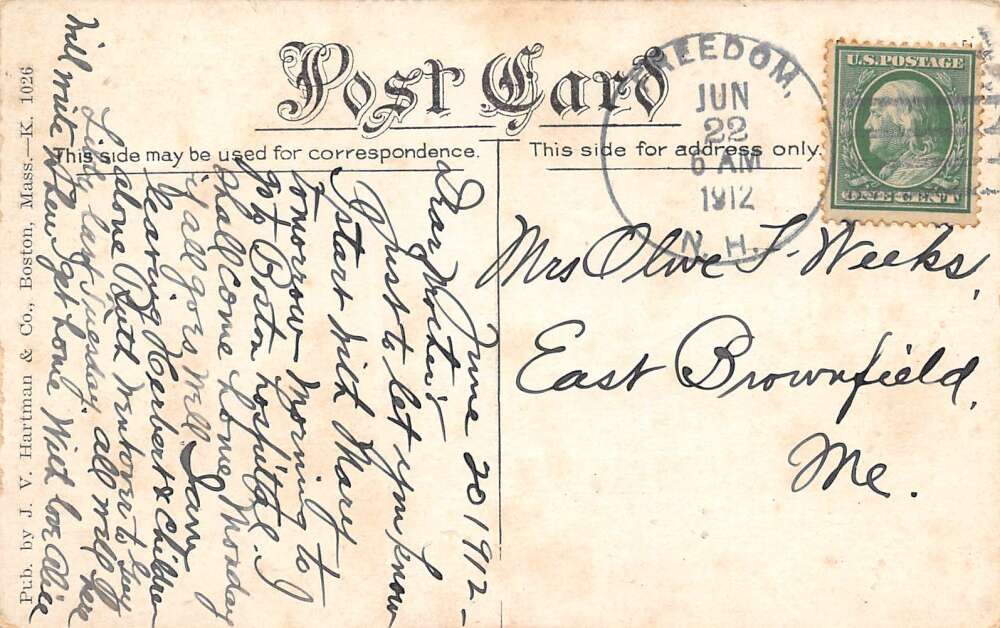 Post Card
This side may be used for correspondence.
This side for address only.
FREEDOM,
JUN
22
6 AM
1912
N. H.
U.S. POSTAGE
ONE CENT
Mrs Olive F. Weeks,
East Brownfield,
Me.
June 20 1912-
Dear Mother;
Just to let you know
I start with Mary
tomorrow morning to
go to Boston hospital. I
shall come home Monday
if all goes well. I am
leaving Herbert & children
alone Ruth went over to
Libby last Tuesday, all well here
Will write when I get home. With love Alice
Pub. by J. V. Hartman & Co., Boston, Mass.—K. 1026